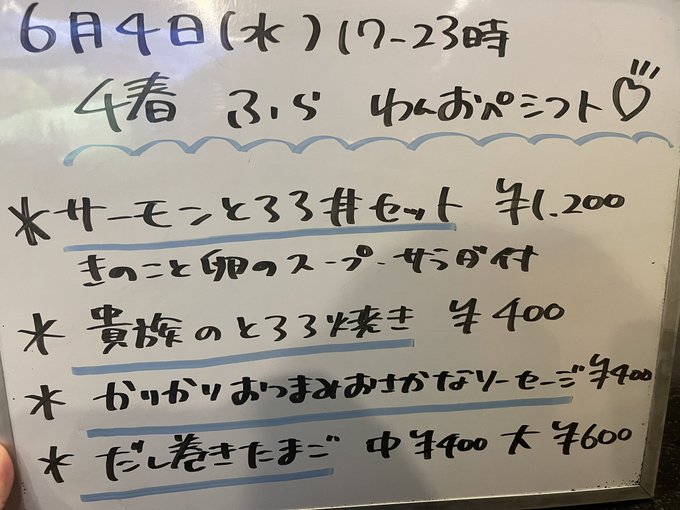 6月4日(水)17-23時
4春 ふら わんおぺシフト♡
*サーモンとろろ丼セット ¥1.200
きのこと卵のスープ・サラダ付
*貴族のとろろ焼き ¥400
*かりかりおつまみおさかなソーセージ¥400
*だし巻きたまご 中¥400 大¥600